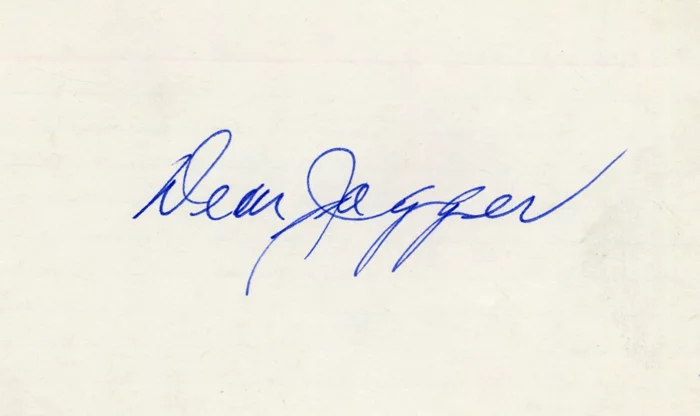 Dean Jagger